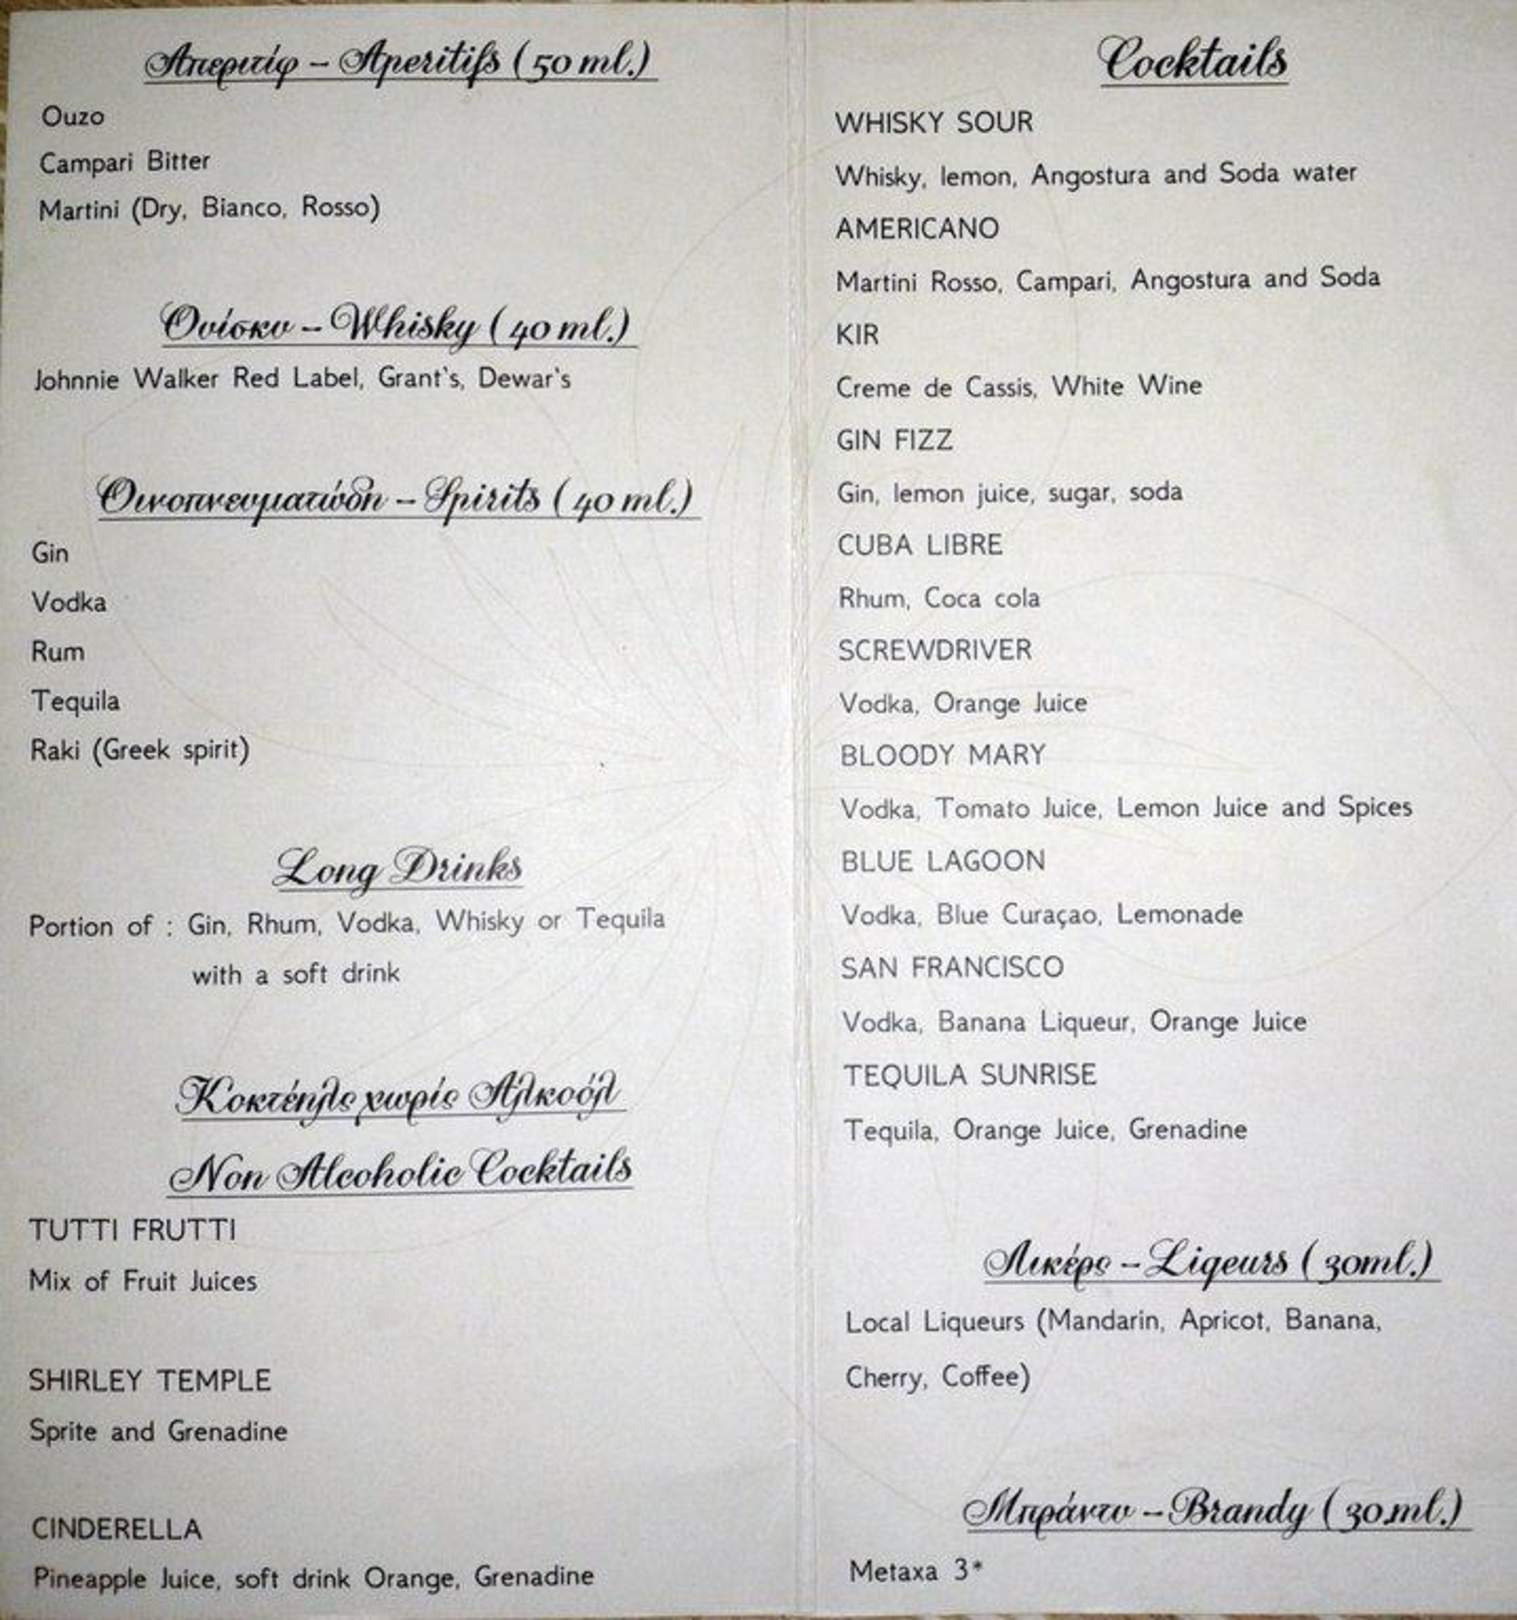 Απεριτίφ – Aperitifs (50 ml.)
Ouzo
Campari Bitter
Martini (Dry, Bianco, Rosso)
Ουίσκυ – Whisky (40 ml.)
Johnnie Walker Red Label, Grant's, Dewar's
Οινοπνευματώδη – Spirits (40 ml.)
Gin
Vodka
Rum
Tequila
Raki (Greek spirit)
Long Drinks
Portion of : Gin, Rhum, Vodka, Whisky or Tequila
with a soft drink
Κοκτέηλς χωρίς Αλκοόλ
Non Alcoholic Cocktails
TUTTI FRUTTI
Mix of Fruit Juices
SHIRLEY TEMPLE
Sprite and Grenadine
CINDERELLA
Pineapple Juice, soft drink Orange, Grenadine
Cocktails
WHISKY SOUR
Whisky, lemon, Angostura and Soda water
AMERICANO
Martini Rosso, Campari, Angostura and Soda
KIR
Creme de Cassis, White Wine
GIN FIZZ
Gin, lemon juice, sugar, soda
CUBA LIBRE
Rhum, Coca cola
SCREWDRIVER
Vodka, Orange Juice
BLOODY MARY
Vodka, Tomato Juice, Lemon Juice and Spices
BLUE LAGOON
Vodka, Blue Curaçao, Lemonade
SAN FRANCISCO
Vodka, Banana Liqueur, Orange Juice
TEQUILA SUNRISE
Tequila, Orange Juice, Grenadine
Λικέρς – Liqeurs (30ml.)
Local Liqueurs (Mandarin, Apricot, Banana,
Cherry, Coffee)
Μπράντυ – Brandy (30.ml.)
Metaxa 3*